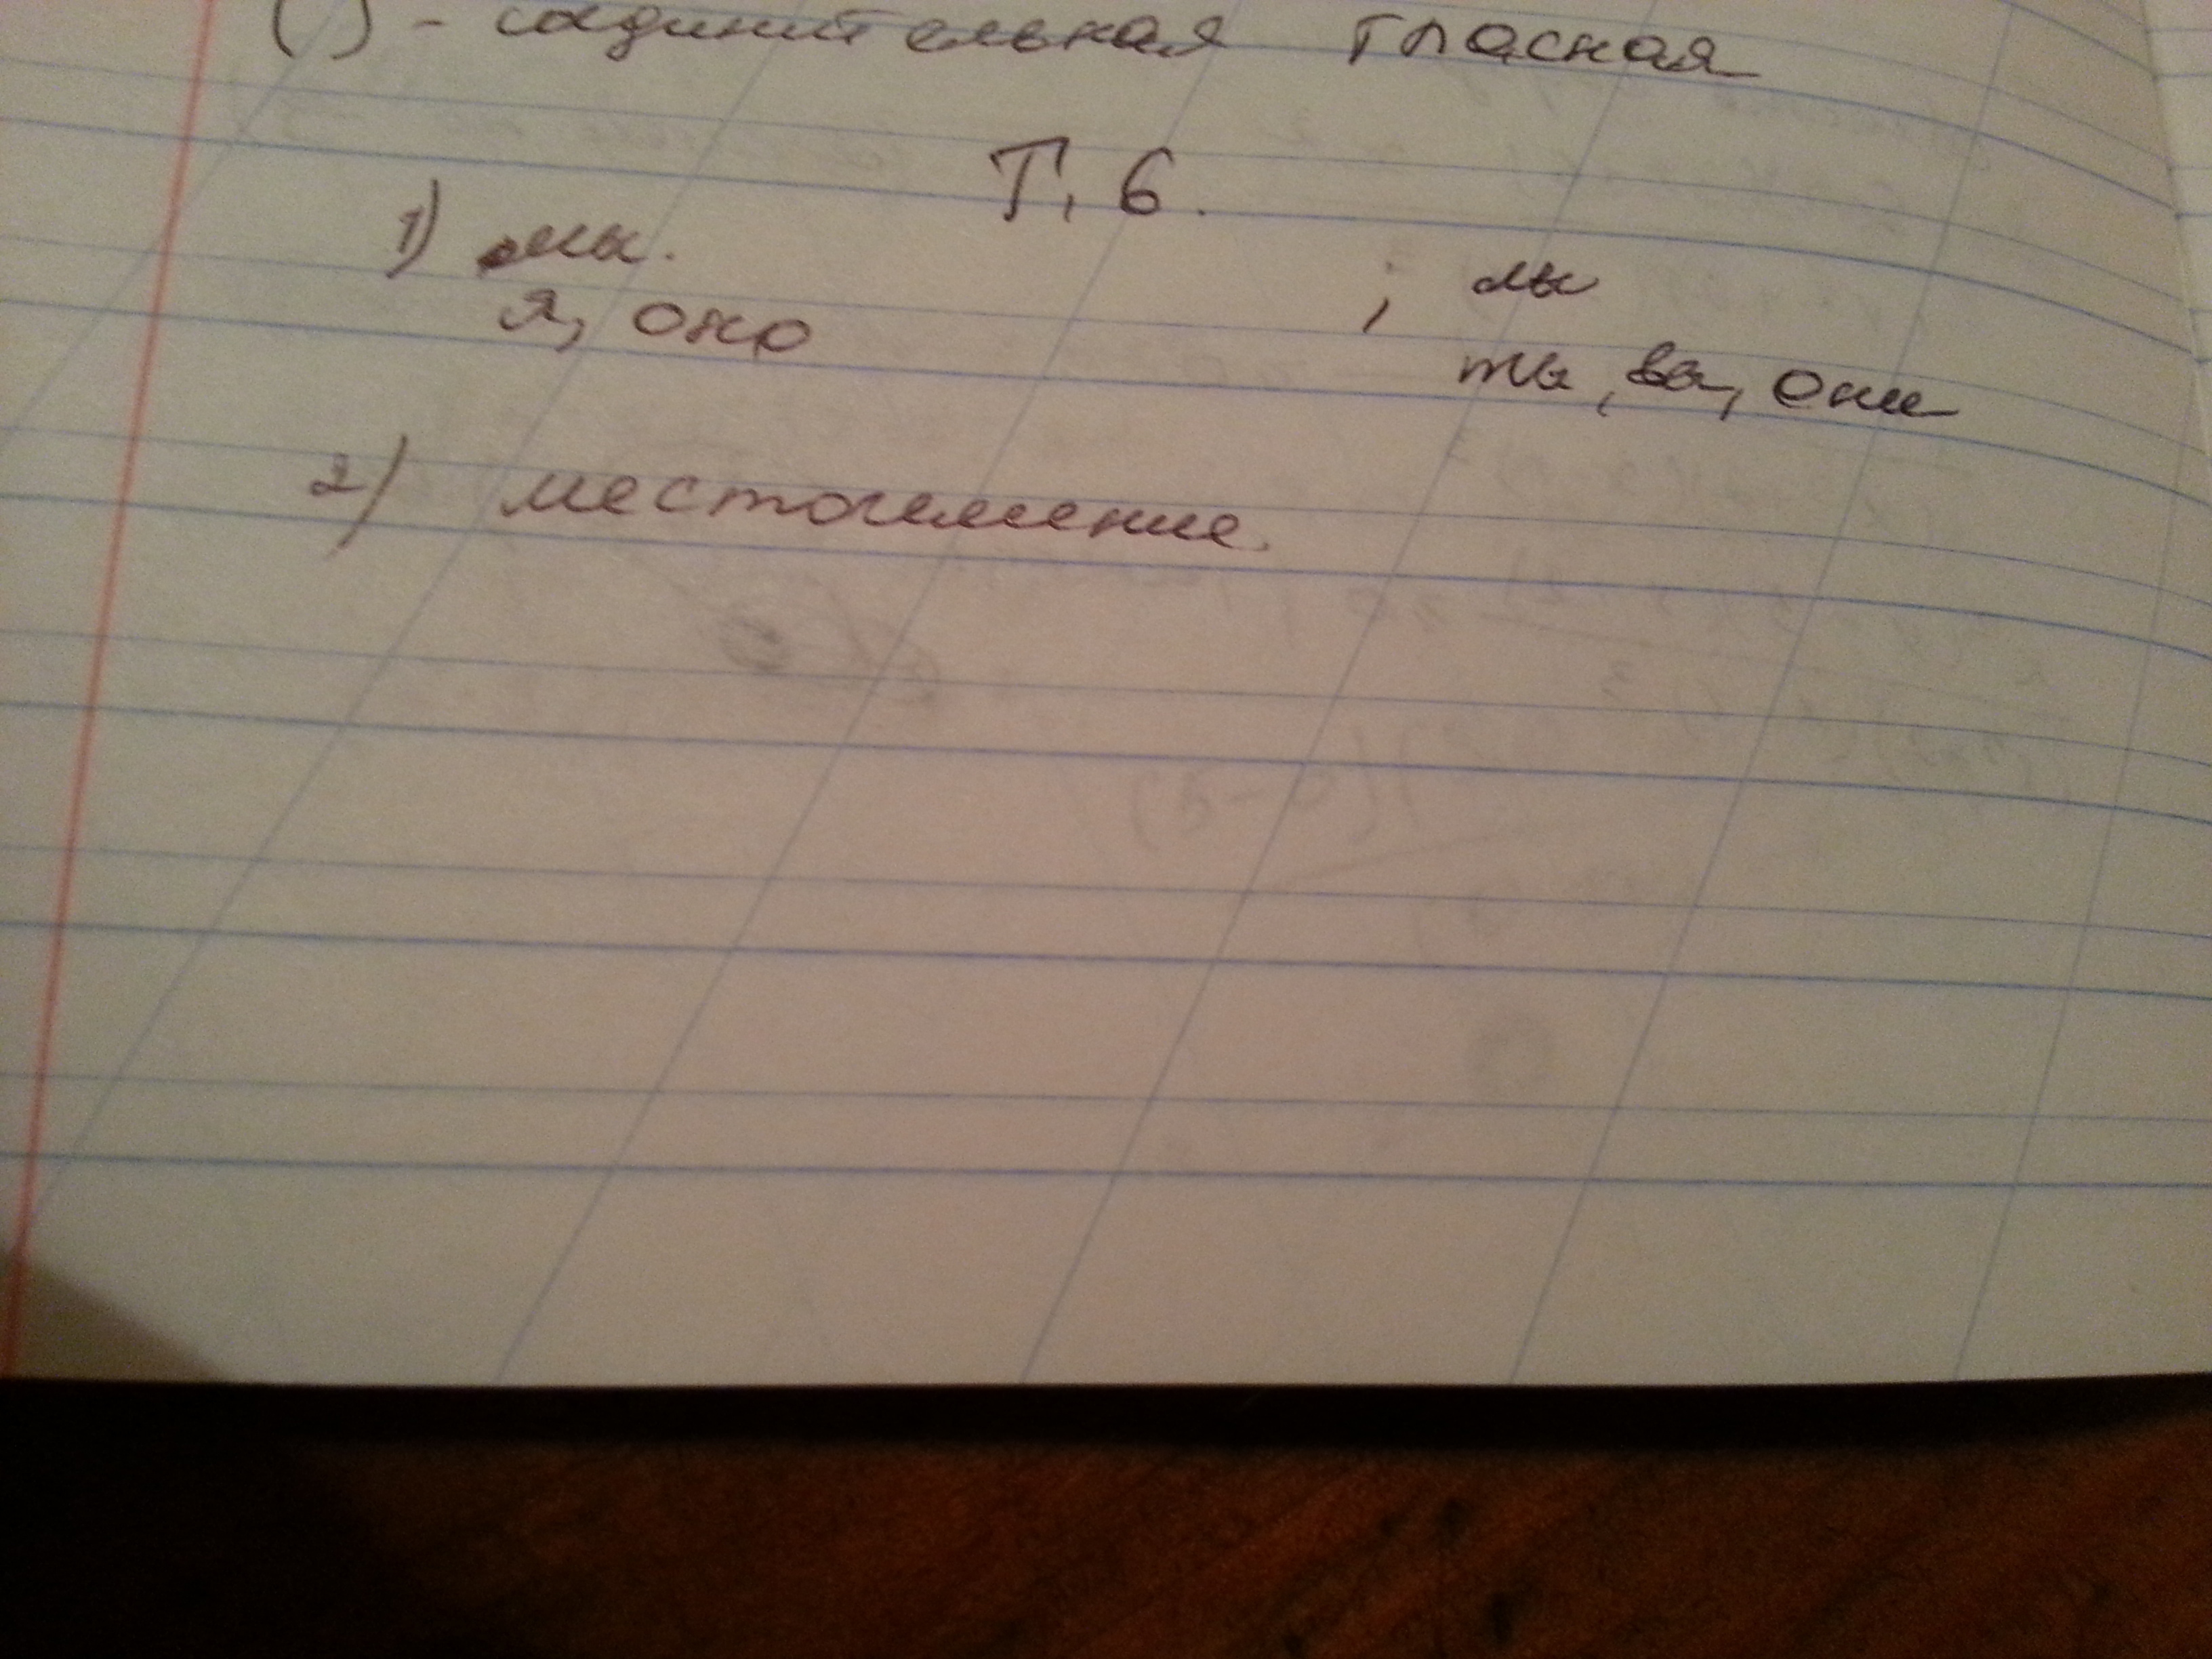 ( ) - соединительная гласная
Т. 6.
1) мы.
; мы
я, оно
ты, вы, они
2) местоимение.